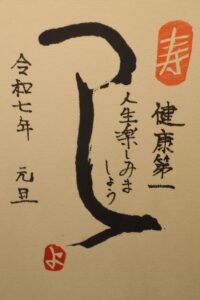 寿
健康第一
人生楽しみま
しょう
令和七年 元旦
よ